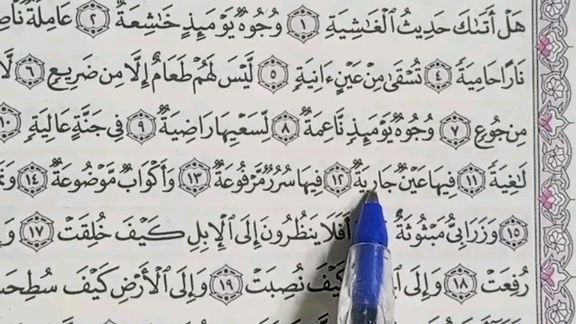 هَلْ أَتَىٰكَ حَدِيثُ ٱلْغَٰشِيَةِ ١ وُجُوهٌ يَوْمَئِذٍ خَٰشِعَةٌ ٢ عَامِلَةٌ
نَارًا حَامِيَةً ٤ تُسْقَىٰ مِنْ عَيْنٍ ءَانِيَةٍ ٥ لَّيْسَ لَهُمْ طَعَامٌ إِلَّا مِن ضَرِيعٍ ٦ لَّا
مِن جُوعٍ ٧ وُجُوهٌ يَوْمَئِذٍ نَّاعِمَةٌ ٨ لِّسَعْيِهَا رَاضِيَةٌ ٩ فِي جَنَّةٍ عَالِيَةٍ ١٠
لَٰغِيَةً ١١ فِيهَا عَيْنٌ جَارِيَةٌ ١٢ فِيهَا سُرُرٌ مَّرْفُوعَةٌ ١٣ وَأَكْوَابٌ مَّوْضُوعَةٌ ١٤
١٥ وَزَرَابِيُّ مَبْثُوثَةٌ أَفَلَا يَنظُرُونَ إِلَى ٱلْإِبِلِ كَيْفَ خُلِقَتْ ١٧
رُفِعَتْ ١٨ وَإِلَى كَيْفَ نُصِبَتْ ١٩ وَإِلَى ٱلْأَرْضِ كَيْفَ سُطِحَتْ